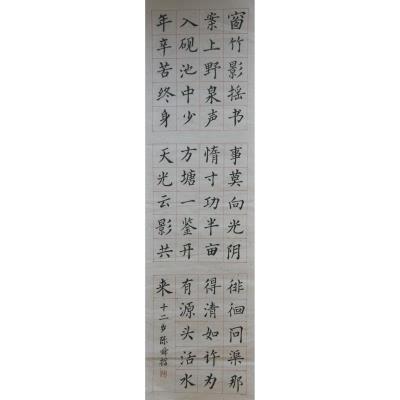 窗竹影摇书
案上野泉声
入砚池中少
年辛苦终身
事莫向光阴
惰寸功半亩
方塘一鉴开
天光云影共
徘徊问渠那
得清如许为
有源头活水
来
十二岁陈